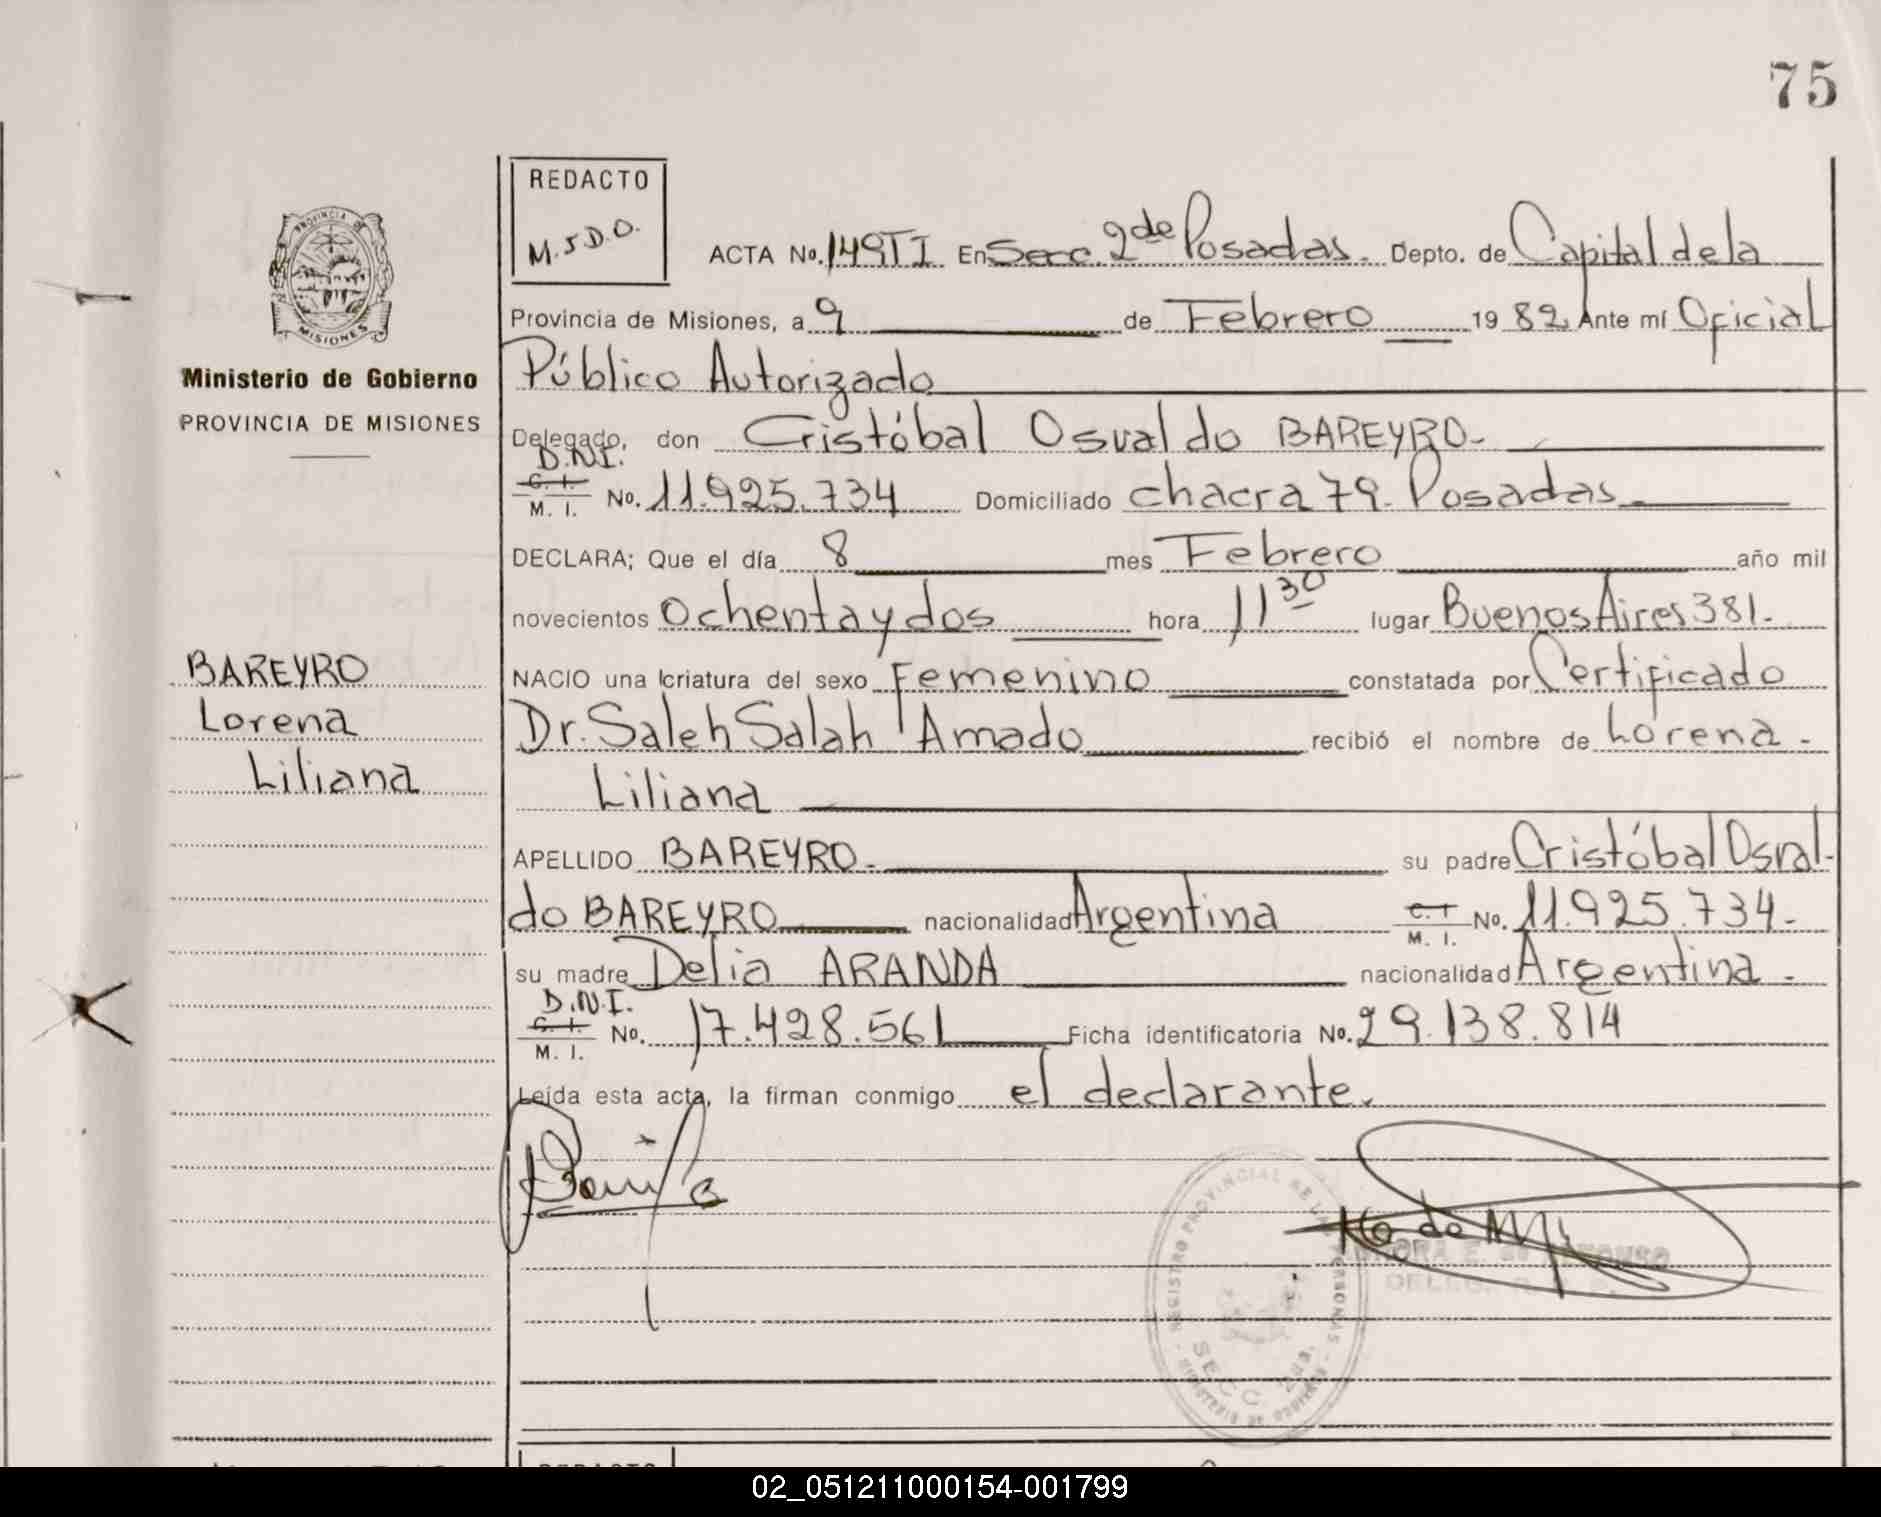 75
REDACTO
M.S.D.O.
ACTA No. 149TI En Secc. 2da de Posadas. Depto. de Capital de la
Provincia de Misiones, a 9 de Febrero 1982, Ante mí Oficial
Público Autorizado
Delegado, don Cristóbal Osvaldo BAREYRO.-
D.N.I.
C. I.
M. I. No. 11.925.734 Domiciliado chacra 79. Posadas.
DECLARA; Que el día 8 mes Febrero año mil
novecientos ochenta y dos hora 11 30 lugar Buenos Aires 381.-
NACIO una criatura del sexo Femenino constatada por Certificado
Dr. Saleh Salah Amado recibió el nombre de Lorena -
Liliana
APELLIDO BAREYRO.- su padre Cristóbal Osval-
do BAREYRO nacionalidad Argentina C. I M. I. No. 11.925.734.-
su madre Delia ARANDA nacionalidad Argentina.-
D.N.I.
C. I.
M. I. No. 17.428.561 Ficha identificatoria No. 29.138.814
Leída esta acta, la firman conmigo el declarante.
PROVINCIA DE
MISIONES
Ministerio de Gobierno
PROVINCIA DE MISIONES
BAREYRO
Lorena
Liliana
REGISTRO PROVINCIAL DE LAS PERSONAS
SECC. 2da.
REDACTO
02_051211000154-001799